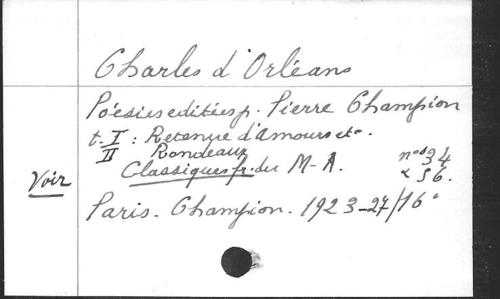 Charles d'Orléans
Poésies editées p. Pierre Champion
t. I : Retenue d'amours etc.
II Rondeaux
Voir Classiques fr. du M-A. nos 34
& 56.
Paris. Champion. 1923-27/16°